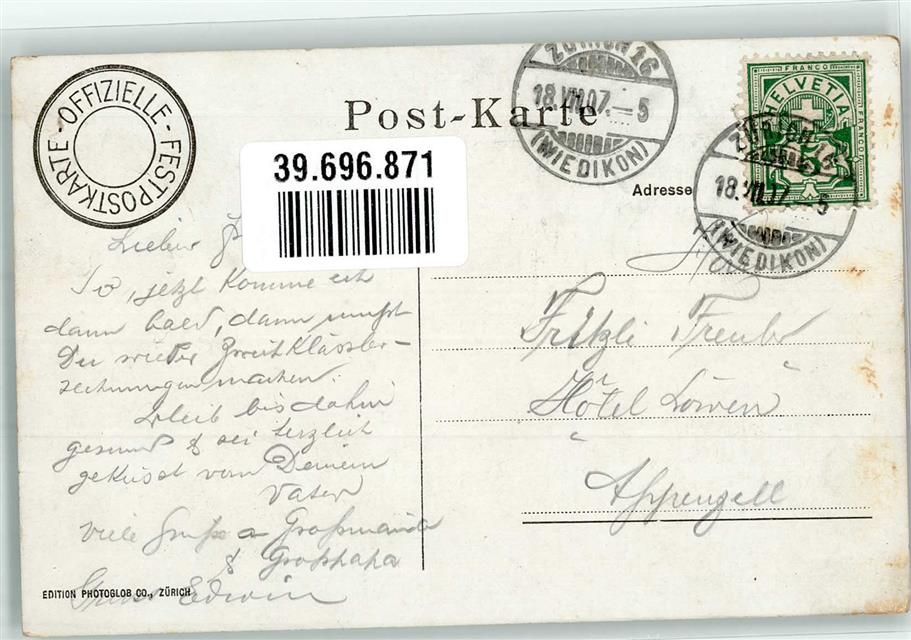 OFFIZIELLE - FESTPOSTKARTE -
Post-Karte
ZÜRICH 16
18.VII.07.–5
(WIEDIKON)
FRANCO
HELVETIA
FRANCO
5
ZÜRICH 16
18.VII.07.–5
(WIEDIKON)
39.696.871
Adresse
Lieber
So, jetzt komme ich
dann bald, dann musst
Du wieder Zweitklässler-
zeichnungen machen.
Bleib bis dahin
gesund & sei herzlich
geküsst von Deinem
Vater
Viele Grüsse a Grossmama
& Grosspapa
Edwin
Fritzli
Hôtel Löwen
Appenzell
EDITION PHOTOGLOB CO., ZÜRICH